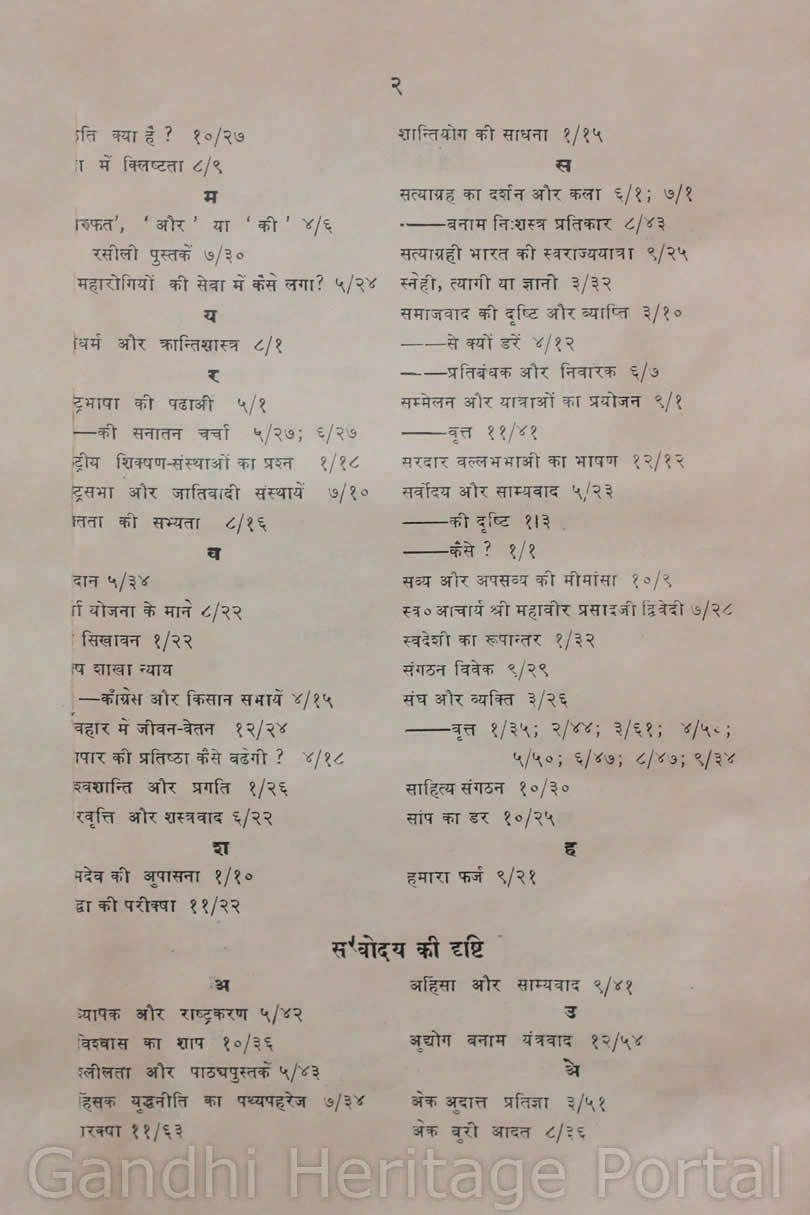 २
ति क्या है ? १०/२७
में क्लिष्टता ८/९
म
रुफत', ' और ' या ' की ' ४/६
रसीली पुस्तकें ७/३०
महारोगियों की सेवा में कैसे लगा? ५/२४
य
धर्म और क्रान्तिशास्त्र ८/१
र
ट्रभाषा की पढाअी ५/१
——की सनातन चर्चा ५/२७; ६/२७
ट्रीय शिक्षण-संस्थाओं का प्रश्न १/१८
ट्रसभा और जातिवादी संस्थायें ७/१०
तता की सभ्यता ८/१६
व
दान ५/३४
र्धा योजना के माने ८/२२
सिखावन १/२२
ष शाखा न्याय
—काँग्रेस और किसान सभायें ४/१५
वहार में जीवन-वेतन १२/२४
ापार की प्रतिष्ठा कैसे बढेगी ? ४/१८
श्वशान्ति और प्रगति १/२६
रवृत्ति और शस्त्रवाद ६/२२
श
मदेव की अुपासना १/१०
द्धा की परीक्षा ११/२२
शान्तियोग की साधना १/१५
स
सत्याग्रह का दर्शन और कला ६/१; ७/१
——बनाम निःशस्त्र प्रतिकार ८/४३
सत्याग्रही भारत की स्वराज्ययात्रा ९/२५
स्नेही, त्यागी या ज्ञानी ३/३२
समाजवाद की दृष्टि और व्याप्ति ३/१०
——से क्यों डरें ४/१२
——प्रतिबंधक और निवारक ६/७
सम्मेलन और यात्राओं का प्रयोजन ९/१
——वृत्त ११/४१
सरदार वल्लभभाअी का भाषण १२/१२
सर्वोदय और साम्यवाद ५/२३
——की दृष्टि १।३
——कैसे ? १/१
सव्य और अपसव्य की मीमांसा १०/९
स्व० आचार्य श्री महावीर प्रसादजी द्विवेदी ७/२८
स्वदेशी का रूपान्तर १/३२
संगठन विवेक ९/२९
संघ और व्यक्ति ३/२६
——वृत्त १/३५; २/४४; ३/६१; ४/५०;
५/५०; ६/४७; ८/४७; ९/३४
साहित्य संगठन १०/३०
सांप का डर १०/२५
ह
हमारा फर्ज ९/२१
सर्वोदय की दृष्टि
अ
व्यापक और राष्ट्रकरण ५/४२
विश्वास का शाप १०/३६
श्लीलता और पाठ्यपुस्तकें ५/४३
हिंसक युद्धनीति का पथ्यपहरेज ७/३४
ारक्षा ११/६३
अहिंसा और साम्यवाद ९/४१
उ
अुद्योग बनाम यंत्रवाद १२/५४
अे
अेक अुदात्त प्रतिज्ञा ३/५१
अेक बुरी आदत ८/३६
Gandhi Heritage Portal